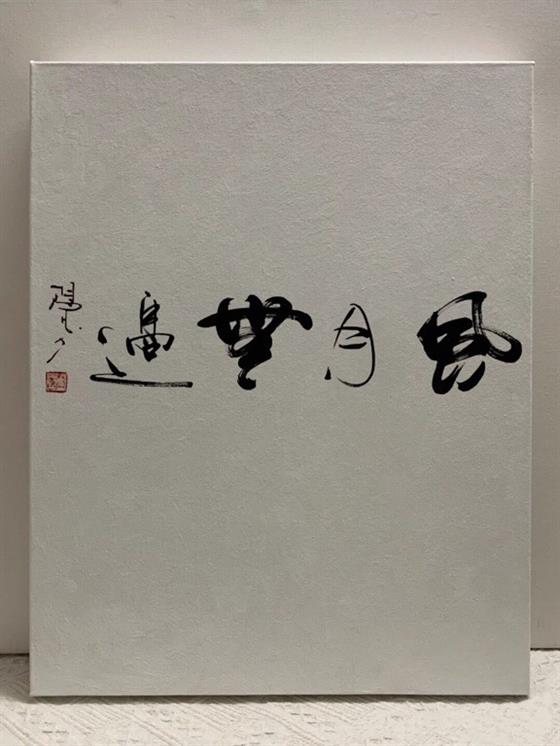 風月無邊